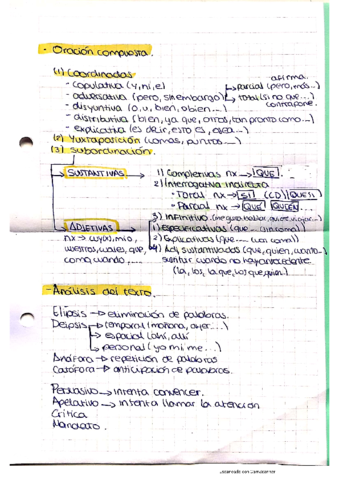 - Oración compuesta.
(1) Coordinadas
- copulativa (y, ni, e)
- adversativa (pero, sin embargo) → parcial (pero, más...) afirma.
→ total (si no que...) contrapone.
- disyuntiva (o, u, bien, o bien...)
- distributiva (bien, ya que, otros, tan pronto como...)
- explicativa (es decir, esto es, o sea...)
(2) Yuxtaposición (comas, puntos...)
(3) Subordinación.
SUSTANTIVAS
1) Completivas nx → QUE
2) Interrogativa indirecta
- Total nx → SI (CD) QUE SI
- Parcial nx → QUÉ QUIÉN
3) Infinitivo
ADJETIVAS
nx → cuyo,
como, cuando, ...
1) Especificativas (que ... sin coma)
2) Explicativas (que ... con coma)
Adj. sustantivadas (que, quien, cuanto...
cuando no hay antecedente
(la, los, la que, los que, quien)
- Análisis del texto.
Elipsis → eliminación de palabras.
Deixis → temporal (mañana, ayer...)
→ espacial (ahí, allí
→ personal (yo mi me...)
Anáfora → repetición de palabras
Catáfora → anticipación de palabras.
Persuasivo → intenta convencer.
Apelativo → intenta llamar la atención
Crítica
Mandato
Escaneado con CamScanner